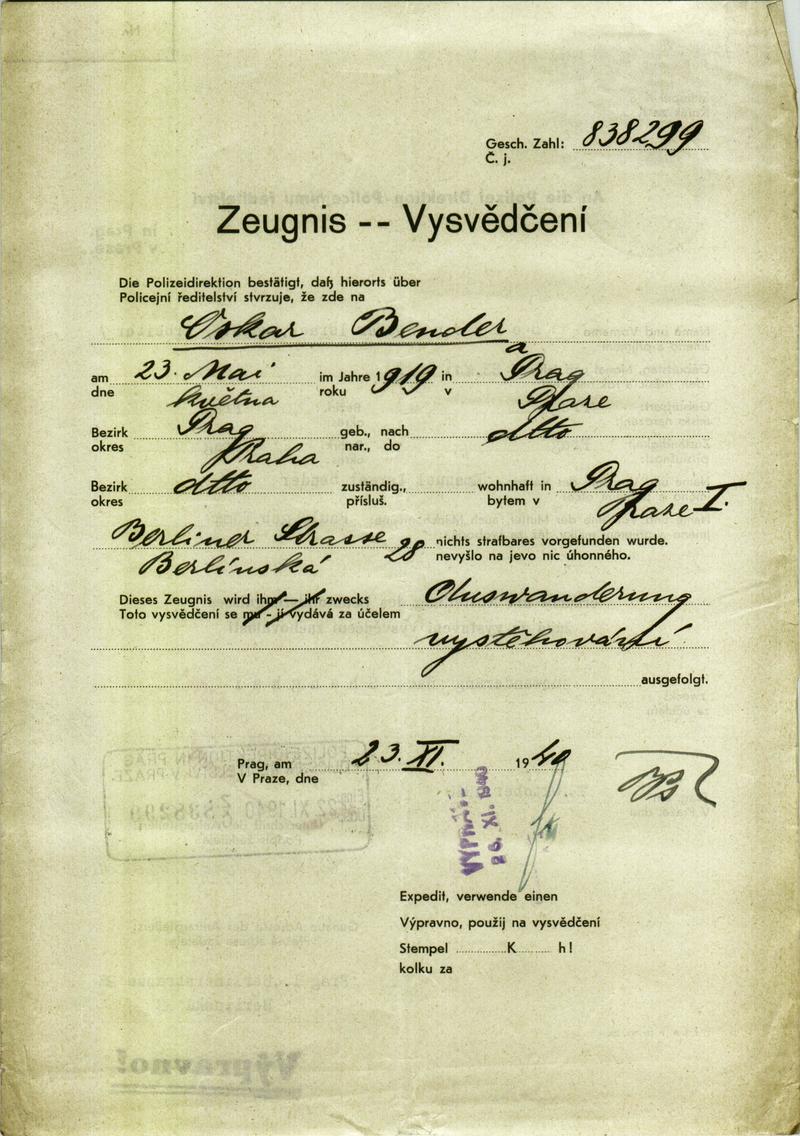 Gesch. Zahl: 838299
Č. j.
Zeugnis -- Vysvědčení
Die Polizeidirektion bestätigt, daß hierorts über
Policejní ředitelství stvrzuje, že zde na
Oskar Bender
am 23. Mai im Jahre 1919 in Prag
dne května roku v Praze
Bezirk Prag geb., nach dtto
okres Praha nar., do
Bezirk dtto zuständig., wohnhaft in Prag
okres přísluš. bytem v Praze I.
Berliner Strasse 28 nichts strafbares vorgefunden wurde.
Berlínská nevyšlo na jevo nic úhonného.
Dieses Zeugnis wird ihm — ihr zwecks Auswanderung
Toto vysvědčení se mu - jí vydává za účelem
vystěhování
ausgefolgt.
Prag, am 23. XI. 1940
V Praze, dne
26. XI. 1940
Expedit, verwende einen
Výpravno, použij na vysvědčení
Stempel K h!
kolku za
Výpravno!